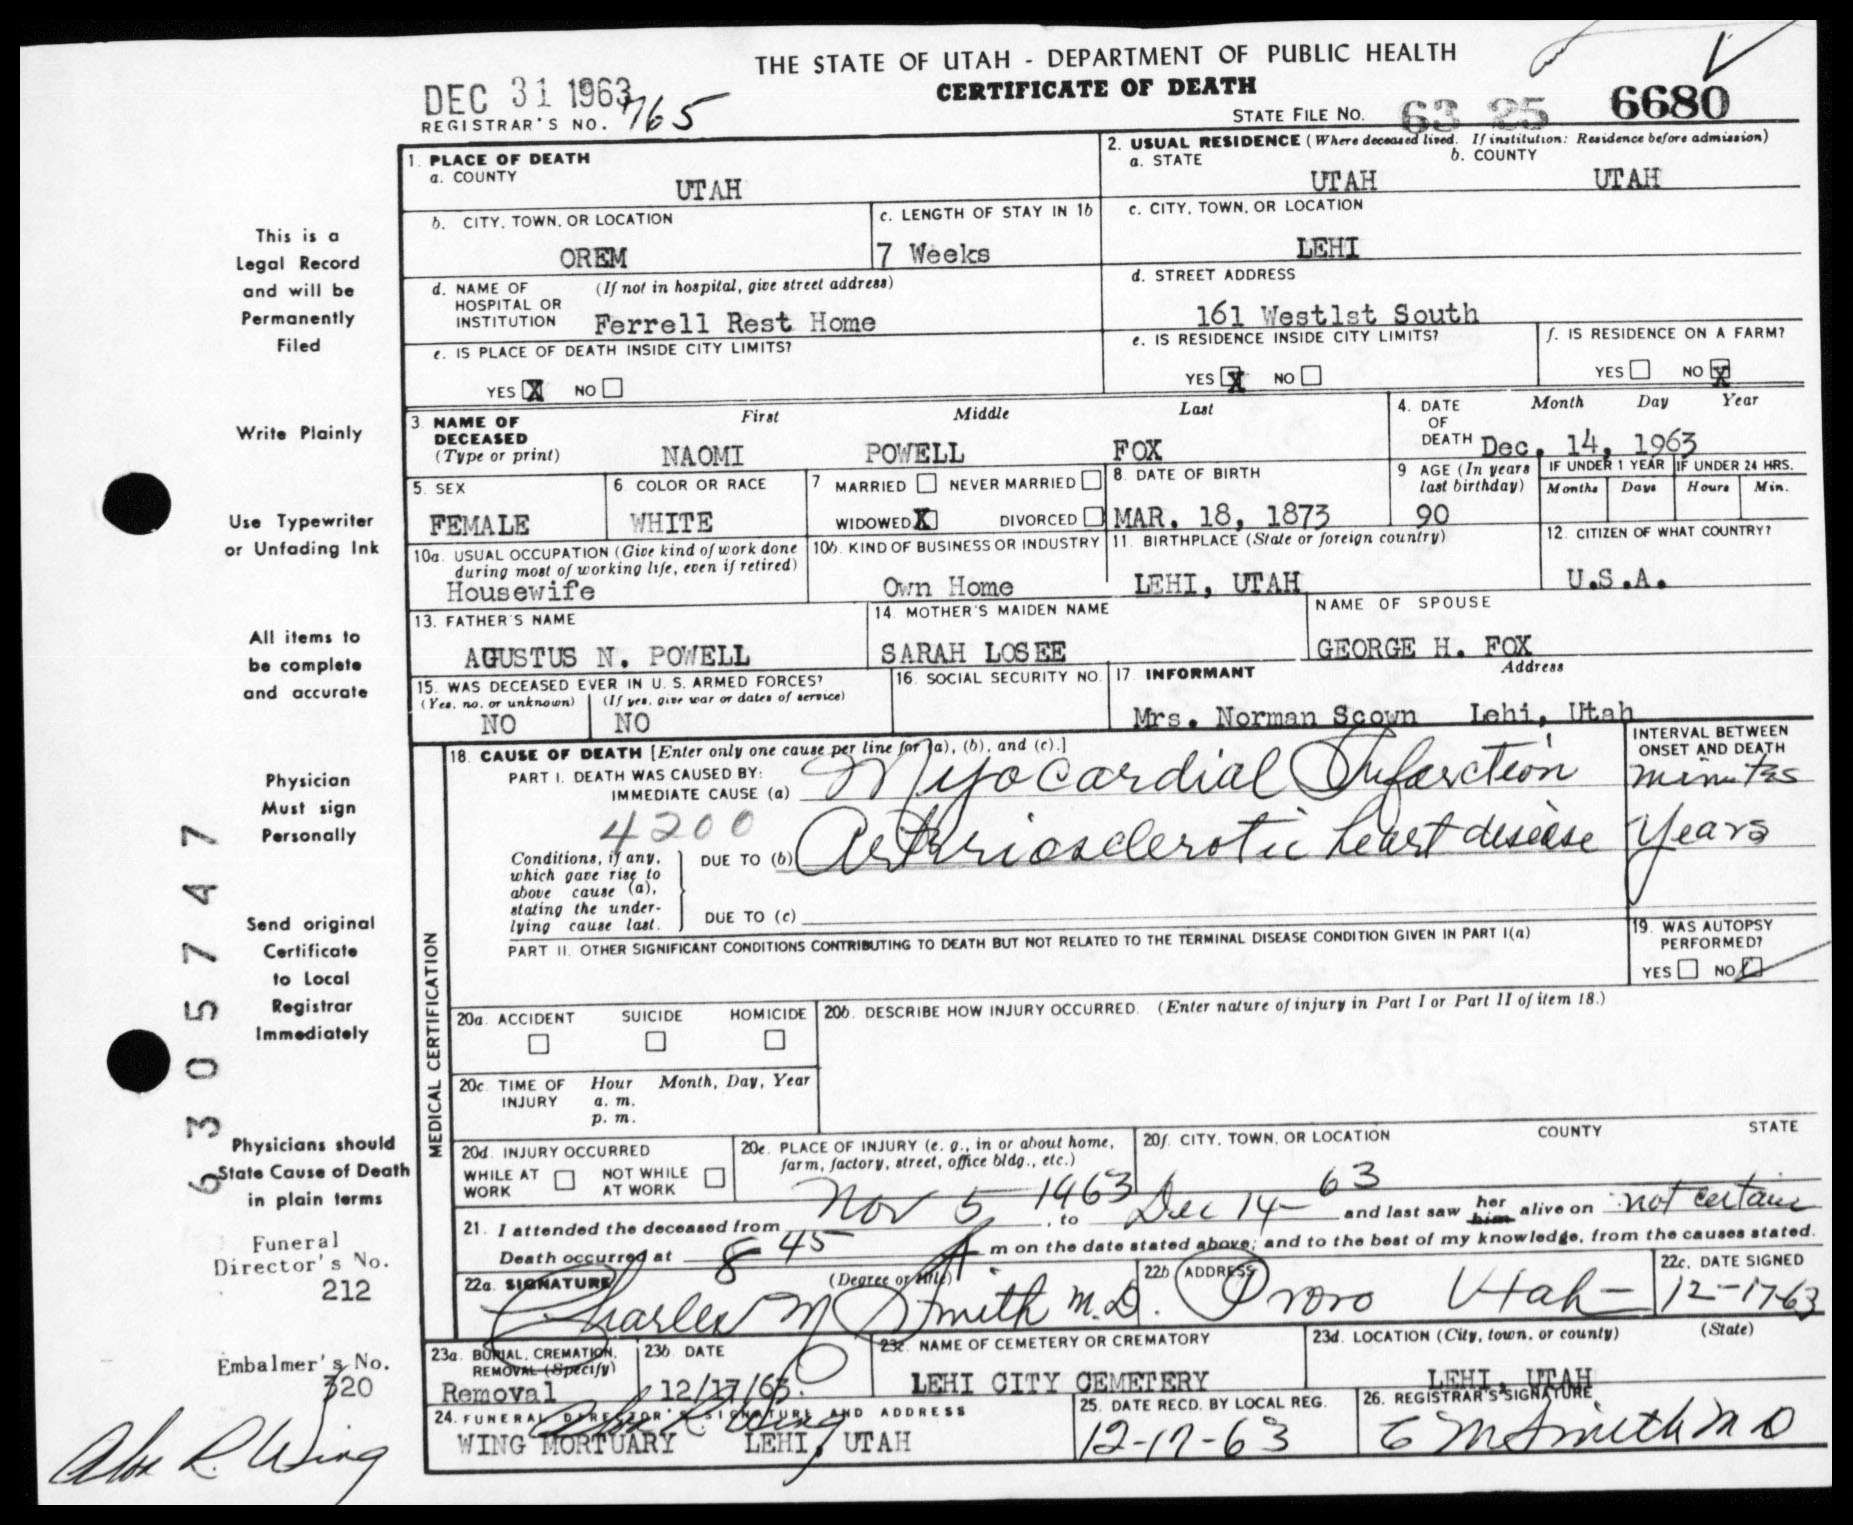 THE STATE OF UTAH - DEPARTMENT OF PUBLIC HEALTH
CERTIFICATE OF DEATH
DEC 31 1963
REGISTRAR'S NO. 765
STATE FILE NO. 63 25 6680
1. PLACE OF DEATH
a. COUNTY
UTAH
2. USUAL RESIDENCE (Where deceased lived. If institution: Residence before admission)
a. STATE b. COUNTY
UTAH UTAH
b. CITY, TOWN, OR LOCATION
OREM
c. LENGTH OF STAY IN 1b
7 Weeks
c. CITY, TOWN, OR LOCATION
LEHI
d. NAME OF (If not in hospital, give street address)
HOSPITAL OR
INSTITUTION Ferrell Rest Home
d. STREET ADDRESS
161 West1st South
e. IS PLACE OF DEATH INSIDE CITY LIMITS?
YES X NO
e. IS RESIDENCE INSIDE CITY LIMITS?
YES X NO
f. IS RESIDENCE ON A FARM?
YES NO X
3. NAME OF First Middle Last
DECEASED
(Type or print) NAOMI POWELL FOX
4. DATE Month Day Year
OF
DEATH Dec. 14, 1963
5. SEX
FEMALE
6. COLOR OR RACE
WHITE
7 MARRIED NEVER MARRIED
WIDOWED X DIVORCED
8. DATE OF BIRTH
MAR. 18, 1873
9 AGE (In years
last birthday)
90
IF UNDER 1 YEAR IF UNDER 24 HRS.
Months Days Hours Min.
10a. USUAL OCCUPATION (Give kind of work done
during most of working life, even if retired)
Housewife
10b. KIND OF BUSINESS OR INDUSTRY
Own Home
11. BIRTHPLACE (State or foreign country)
LEHI, UTAH
12. CITIZEN OF WHAT COUNTRY?
U.S.A.
13. FATHER'S NAME
AGUSTUS N. POWELL
14. MOTHER'S MAIDEN NAME
SARAH LOSEE
NAME OF SPOUSE
GEORGE H. FOX
15. WAS DECEASED EVER IN U. S. ARMED FORCES?
(Yes, no, or unknown) (If yes, give war or dates of service)
NO NO
16. SOCIAL SECURITY NO.
17. INFORMANT Address
Mrs. Norman Scown Lehi, Utah
MEDICAL CERTIFICATION
18. CAUSE OF DEATH [Enter only one cause per line for (a), (b), and (c).]
INTERVAL BETWEEN
ONSET AND DEATH
PART I. DEATH WAS CAUSED BY:
IMMEDIATE CAUSE (a) Myocardial Infarction minutes
4200
Conditions, if any,
which gave rise to
above cause (a),
stating the under-
lying cause last.
DUE TO (b) Arteriosclerotic heart disease Years
DUE TO (c)
PART II. OTHER SIGNIFICANT CONDITIONS CONTRIBUTING TO DEATH BUT NOT RELATED TO THE TERMINAL DISEASE CONDITION GIVEN IN PART I(a)
19. WAS AUTOPSY
PERFORMED?
YES NO
20a. ACCIDENT SUICIDE HOMICIDE
20b. DESCRIBE HOW INJURY OCCURRED. (Enter nature of injury in Part I or Part II of item 18.)
20c. TIME OF Hour Month, Day, Year
INJURY a. m.
p. m.
20d. INJURY OCCURRED
WHILE AT NOT WHILE
WORK AT WORK
20e. PLACE OF INJURY (e. g., in or about home,
farm, factory, street, office bldg., etc.)
20f. CITY, TOWN, OR LOCATION COUNTY STATE
21. I attended the deceased from Nov 5 1963, to Dec 14 - 63 and last saw her him alive on not certain
Death occurred at 8 45 A m on the date stated above; and to the best of my knowledge, from the causes stated.
22a. SIGNATURE (Degree or title)
Charles M Smith M.D.
22b. ADDRESS
Provo Utah
22c. DATE SIGNED
12-17-63
23a. BURIAL, CREMATION,
REMOVAL (Specify)
Removal
23b. DATE
12/17/63.
23c. NAME OF CEMETERY OR CREMATORY
LEHI CITY CEMETERY
23d. LOCATION (City, town, or county) (State)
LEHI, UTAH
24. FUNERAL DIRECTOR'S SIGNATURE AND ADDRESS
WING MORTUARY LEHI, UTAH
25. DATE RECD. BY LOCAL REG.
12-17-63
26. REGISTRAR'S SIGNATURE
C M Smith M D
This is a
Legal Record
and will be
Permanently
Filed
Write Plainly
Use Typewriter
or Unfading Ink
All items to
be complete
and accurate
Physician
Must sign
Personally
Send original
Certificate
to Local
Registrar
Immediately
Physicians should
State Cause of Death
in plain terms
6305747
Funeral
Director's No.
212
Embalmer's No.
320
R. Wing